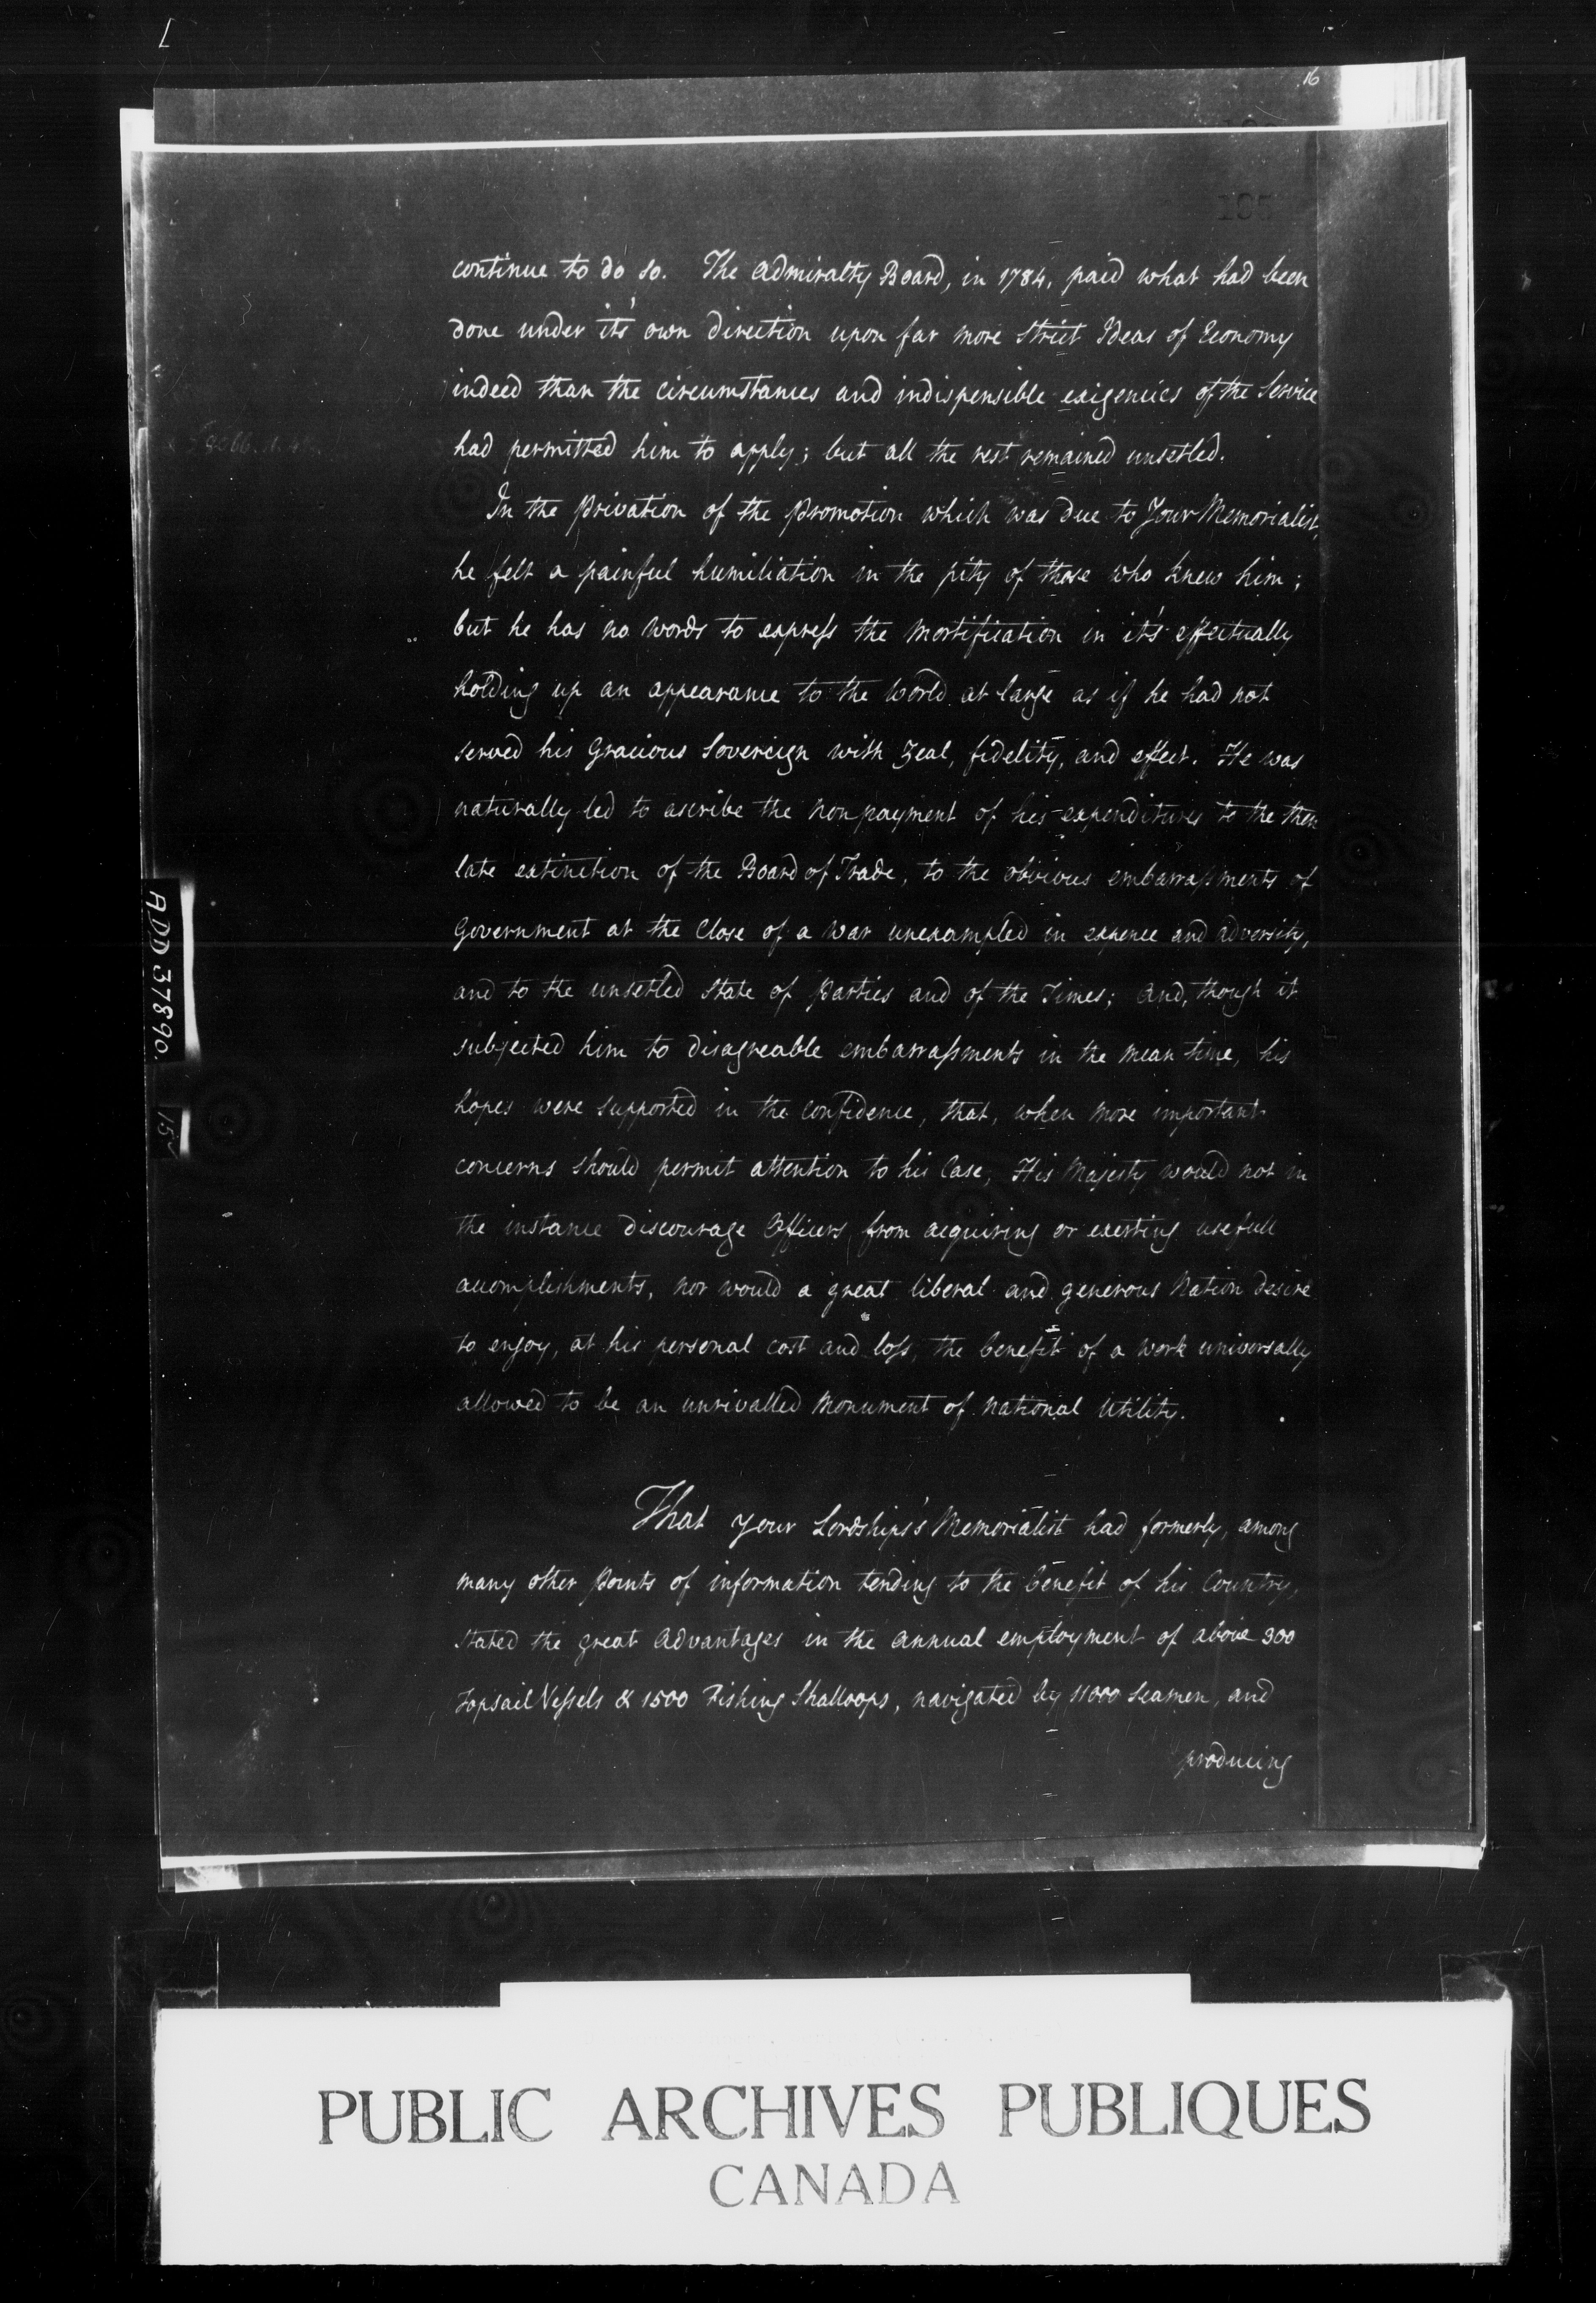 16
195
continue to do so. The Admiralty Board, in 1784, paid what had been
done under it's own direction upon far more strict Ideas of Economy
indeed than the circumstances and indispensible exigencies of the Service
had permitted him to apply; but all the rest remained unsetled.
In the Privation of the promotion which was due to Your Memorialist,
he felt a painful humiliation in the pity of those who knew him;
but he has no words to expreſs the mortification in it's effectually
holding up an appearance to the World at large as if he had not
served his Gracious Sovereign with Zeal, fidelity, and effect. He was
naturally led to ascribe the non payment of his expenditures to the then
late extinction of the Board of Trade, to the obvious embarraſsments of
Government at the Close of a War unexampled in expence and adversity,
and to the unsetled State of Parties and of the Times; and, though it
subjected him to disagreable embarraſsments in the mean time, his
hopes were supported in the confidence, that, when more important
concerns should permit attention to his Case, His Majesty would not in
the instance discourage Officers from acquiring or exerting usefull
accomplishments, nor would a great liberal and generous Nation desire
to enjoy, at his personal cost and loſs, the benefit of a work universally
allowed to be an unrivalled Monument of National Utility.
That your Lordships's Memorialist had formerly, among
many other Points of information tending to the benefit of his Country,
stated the great Advantages in the annual employment of above 300
Topsail Veſsels & 1500 Fishing Shalloops, navigated by 11000 Seamen, and
producing
ADD 37890
15
PUBLIC ARCHIVES PUBLIQUES
CANADA